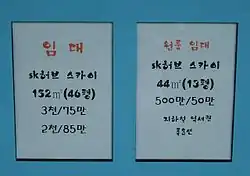 임대
sk허브 스카이
152㎡(46평)
3천/75만
2천/85만
원룸 임대
sk허브 스카이
44㎡(13평)
500만/50만